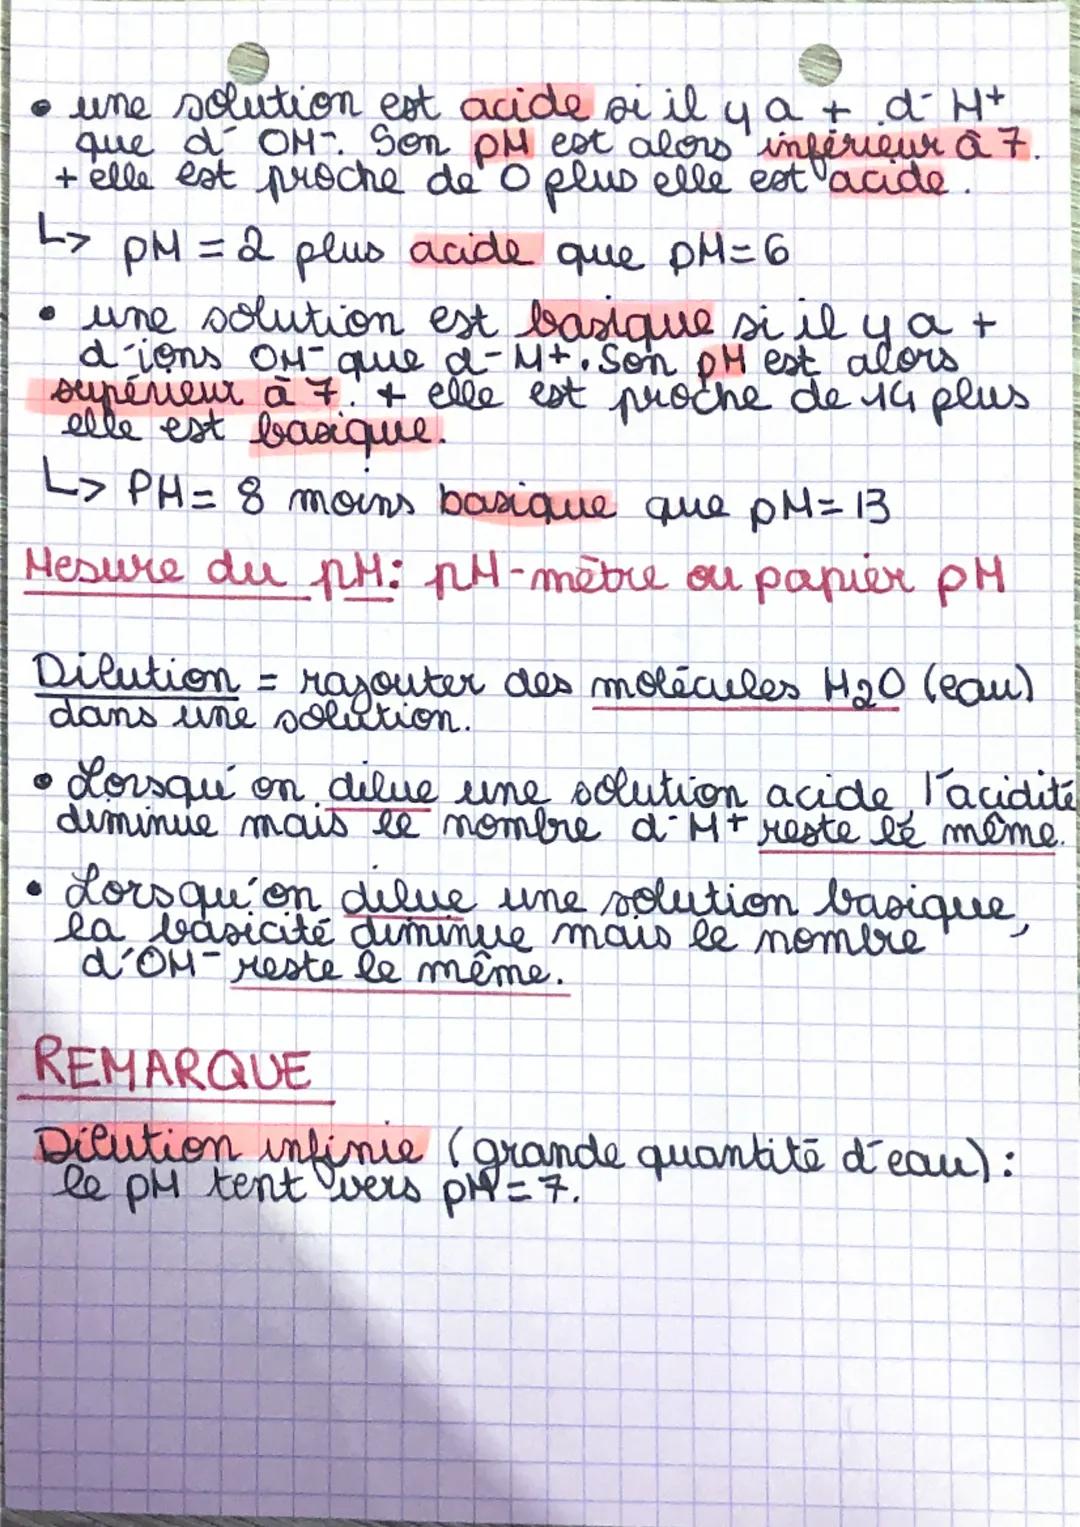 • une solution est acide si il y a + d'H+
que d'OH-. Son pH est alors inférieur à 7.
+ elle est proche de 0 plus elle est acide.
↳ pH = 2 plus acide que pH=6
• une solution est basique si il y a +
d'ions OH- que d'H+. Son pH est alors
supérieur à 7. + elle est proche de 14 plus
elle est basique.
↳ PH= 8 moins basique que pH= 13
Mesure du pH: pH-mètre ou papier pH
Dilution = rajouter des molécules H2O (eau)
dans une solution.
• Lorsqu'on dilue une solution acide, l'acidité
diminue mais le nombre d'H+ reste le même.
• Lorsqu'on dilue une solution basique,
la basicité diminue mais le nombre
d'OH- reste le même.
REMARQUE
Dilution infinie (grande quantité d'eau):
le pH tent vers pH=7.